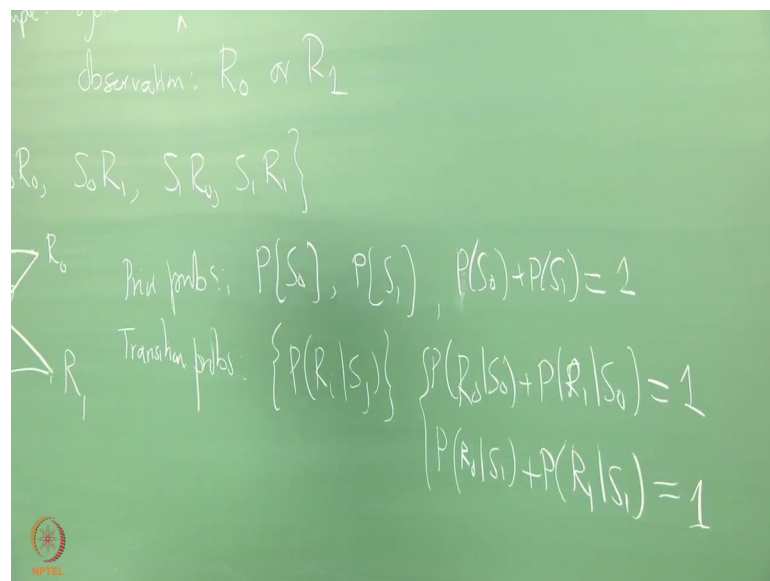 Observation: R₀ or R₁
R₀, S₀R₁, S₁R₀, S₁R₁}
R₀
Prior probs:, P[S₀], P[S₁], P(S₀)+P(S₁)=1
Transition probs: {P(Rᵢ|Sⱼ)} {P(R₀|S₀)+P(R₁|S₀)=1
R₁
P(R₀|S₁)+P(R₁|S₁)=1
NPTEL